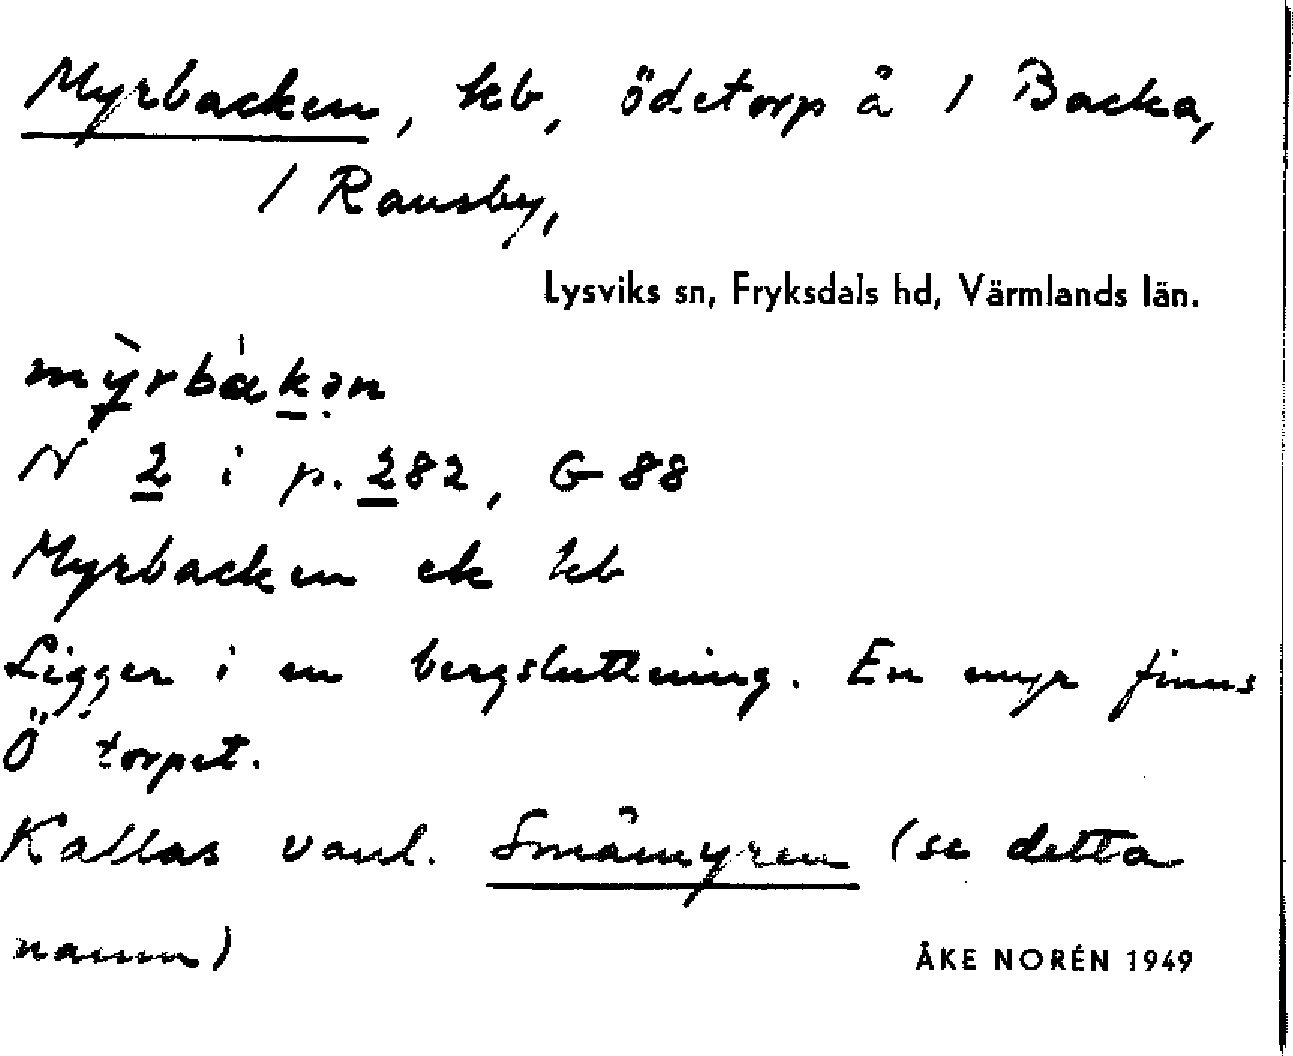 Myrbacken, kb, ödetorp å 1 Backa,
1 Ransby,
Lysviks sn, Fryksdals hd, Värmlands län.
mỳrbákən
N 2 i p. 282, G 88
Myrbacken ek kb
Ligger i en bergsluttning. En myr finns
Ö torpet.
Kallas vanl. Småmyren (se detta
namn)
ÅKE NORÉN 1949